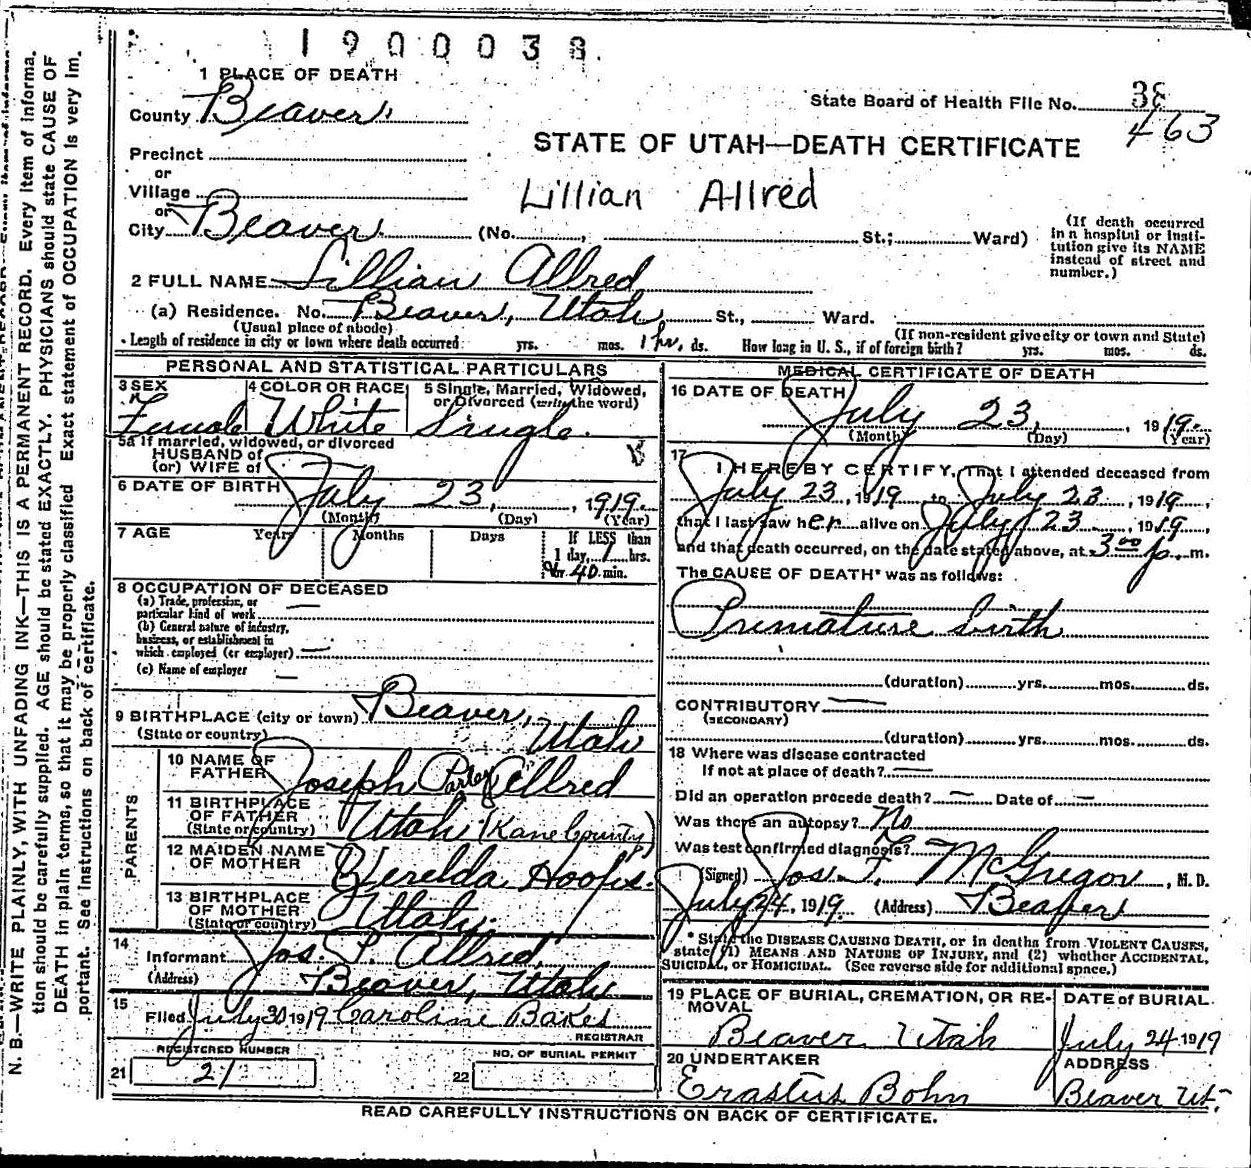 1900038.
1 PLACE OF DEATH
County Beaver
State Board of Health File No. 38
463
STATE OF UTAH—DEATH CERTIFICATE
Precinct
or
Village
Lillian Allred
or
City Beaver (No. , St.; Ward)
(If death occurred in a hospital or institution give its NAME instead of street and number.)
2 FULL NAME Lillian Allred
(a) Residence. No. Beaver, Utah St., Ward.
(Usual place of abode) (If non-resident give city or town and State)
Length of residence in city or town where death occurred yrs. mos. 1 hr. ds. How long in U. S., if of foreign birth? yrs. mos. ds.
PERSONAL AND STATISTICAL PARTICULARS
3 SEX Female
4 COLOR OR RACE White
5 Single, Married, Widowed, or Divorced (write the word) Single.
5a If married, widowed, or divorced
HUSBAND of
(or) WIFE of
6 DATE OF BIRTH July 23, 1919.
(Month) (Day) (Year)
7 AGE Years Months Days If LESS than
1 day, 1 hrs.
or 40 min.
8 OCCUPATION OF DECEASED
(a) Trade, profession, or
particular kind of work —
(b) General nature of industry,
business, or establishment in
which employed (or employer) —
(c) Name of employer —
9 BIRTHPLACE (city or town) Beaver,
(State or country) Utah
PARENTS
10 NAME OF FATHER Joseph Allred
11 BIRTHPLACE OF FATHER (State or country) Utah (Kane County)
12 MAIDEN NAME OF MOTHER Hoofs.
13 BIRTHPLACE OF MOTHER (State or country) Utah.
14
Informant Jos. P. Allred
(Address) Beaver, Utah
15
Filed July 30 1919 Caroline Bakes
REGISTRAR
REGISTERED NUMBER
21 21
NO. OF BURIAL PERMIT
22
MEDICAL CERTIFICATE OF DEATH
16 DATE OF DEATH
July 23, 1919.
(Month) (Day) (Year)
17
I HEREBY CERTIFY, That I attended deceased from
July 23, 1919, to July 23, 1919,
that I last saw her alive on July 23, 1919,
and that death occurred, on the date stated above, at 3 00 p. m.
The CAUSE OF DEATH* was as follows:
Premature birth
(duration) yrs. mos. ds.
CONTRIBUTORY —
(SECONDARY)
(duration) yrs. mos. ds.
18 Where was disease contracted
If not at place of death? —
Did an operation precede death? — Date of —
Was there an autopsy? No
Was test confirmed diagnosis?
(Signed) Jos. F. McGregor, M. D.
July 24, 1919 (Address) Beaver
* State the DISEASE CAUSING DEATH, or in deaths from VIOLENT CAUSES,
state (1) MEANS AND NATURE OF INJURY, and (2) whether ACCIDENTAL,
SUICIDAL, or HOMICIDAL. (See reverse side for additional space.)
19 PLACE OF BURIAL, CREMATION, OR REMOVAL
Beaver Utah
DATE of BURIAL
July 24 1919
20 UNDERTAKER
Erastus Bohn
ADDRESS
Beaver Ut.
READ CAREFULLY INSTRUCTIONS ON BACK OF CERTIFICATE.
N. B.—WRITE PLAINLY, WITH UNFADING INK—THIS IS A PERMANENT RECORD. Every item of informa.
tion should be carefully supplied. AGE should be stated EXACTLY. PHYSICIANS should state CAUSE OF
DEATH in plain terms, so that it may be properly classified. Exact statement of OCCUPATION is very im.
portant. See instructions on back of certificate.